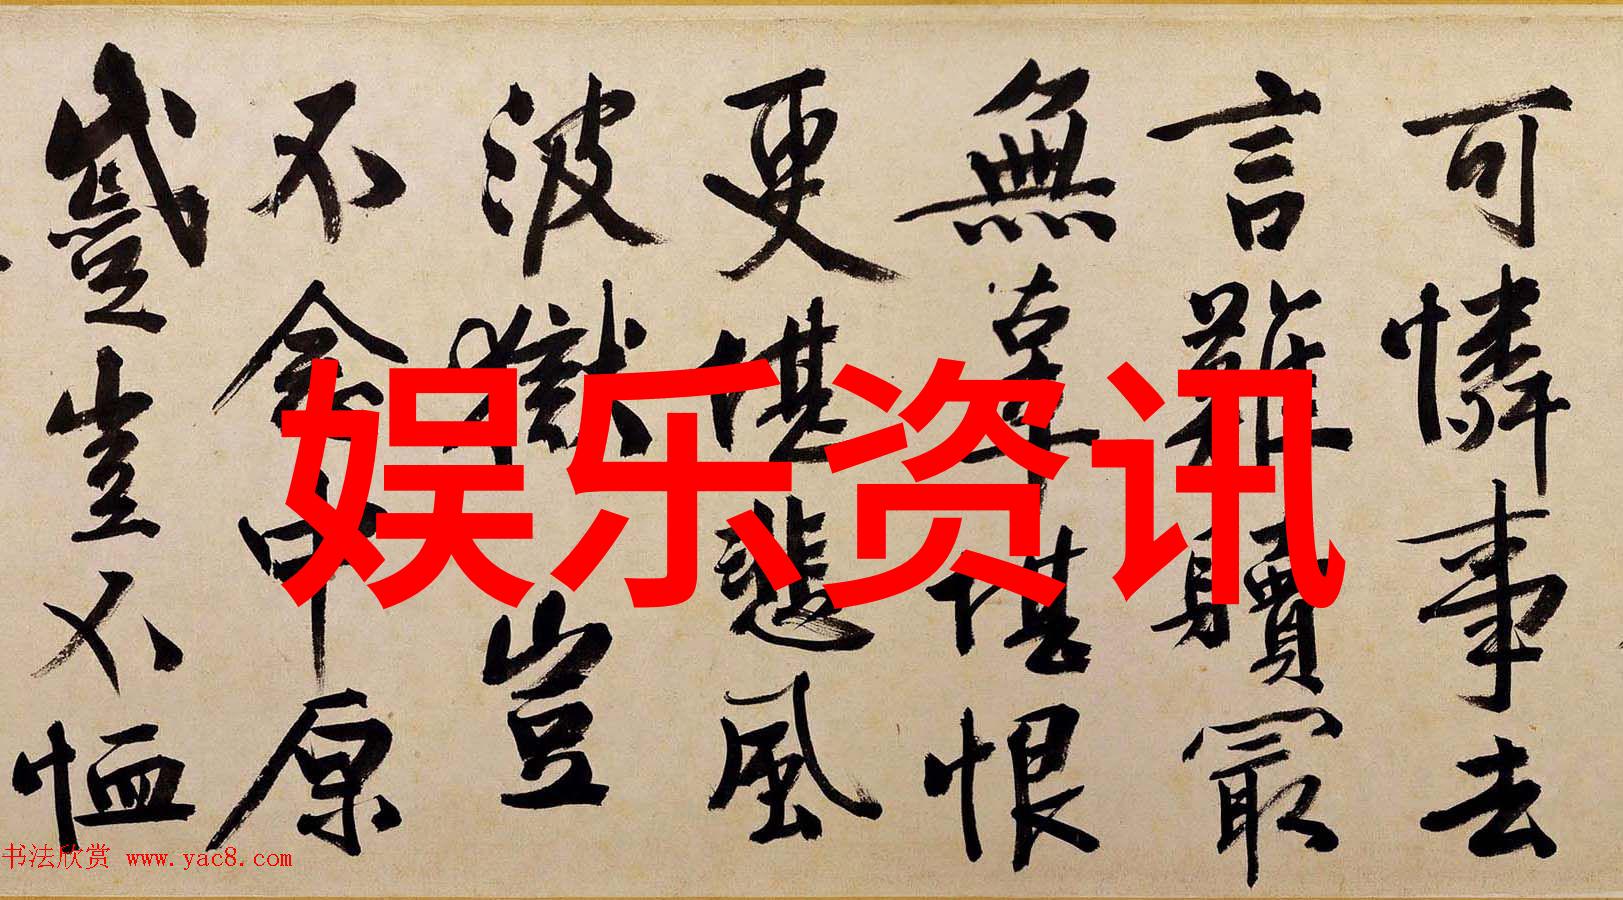 可憐事去
言難贖冣
無辜堪恨
更堪悲風
波獄豈
不念中原
蹙豈不恤
娱乐资讯
书法欣赏 www.yac8.com